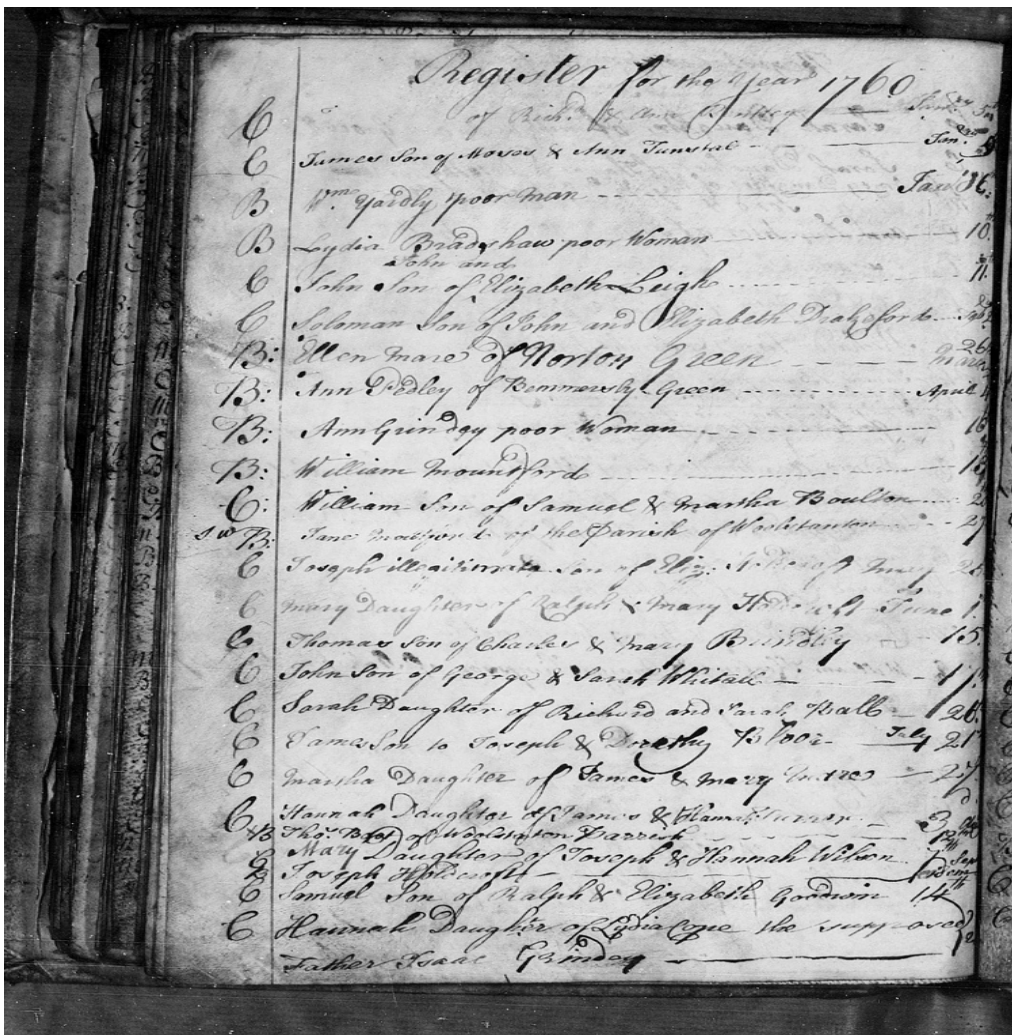 Register for the Year 1760
C of Rich.d & Ann
C James Son of Moses & Ann Tunstal Jan.
B W.m Yardly poor man Jan
B Lydia Bradshaw poor Woman 10
John and
C John Son of Elizabeth Leigh 11
C Soloman Son of John and Elizabeth Drakeford
B: Ellen Mare of Norton Green 26 March
B: Ann Pedley of Bemmersly Green April
B: Ann Grindey poor Woman 16
B: William Mountford
C: William Son of Samuel & Martha Boulton
B: Jane of the Parish of Woolstanton 27
C Joseph illegitimate Son of Eliz: May
C Mary Daughter of Ralph & Mary June 1
C Thomas Son of Charles & Mary Brindley 15
C John Son of George & Sarah Whitall 17
C Sarah Daughter of Richard and Sarah Ball 26
C James Son to Joseph & Dorethy Bloor July 21
C Martha Daughter of James & Mary Mare 27
C Hannah Daughter of James & Hannah Turner 3
B Tho.s Boot of Woolstanton Parrish
C Mary Daughter of Joseph & Hannah Wilson
B Joseph Holdcroft
C Samuel Son of Ralph & Elizabeth Goodwin 14th
C Hannah Daughter of Lydia Cope the supposed
Father Isaac Grindey